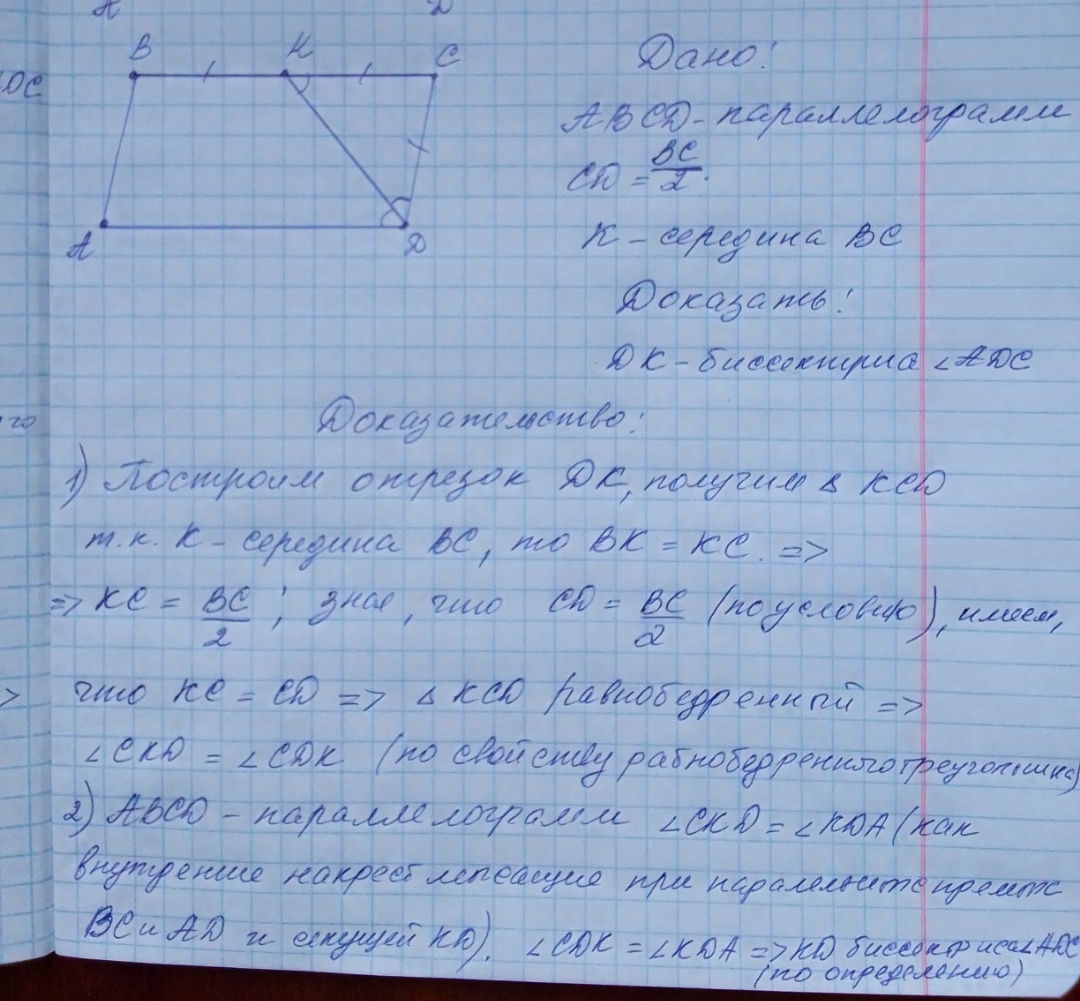 A D
B К C
DC
A D
Дано:
ABCD - параллелограмм
CD = BC/2.
К - середина BC
Доказать:
DK - биссектриса ∠ADC
го
Доказательство:
1) Построим отрезок DK, получим Δ KCD
т.к. К - середина BC, то BK = KC. =>
=> KC = BC/2 ; зная, что CD = BC/2 (по условию), имеем,
> что KC = CD => Δ KCD равнобедренный =>
∠CKD = ∠CDK (по свойству равнобедренного треугольника)
2) ABCD - параллелограмм ∠CKD = ∠KDA (как
внутренние накрест лежащие при
BC и AD и секущей KD). ∠CDK = ∠KDA => KD биссектриса ∠ADC
(по определению)